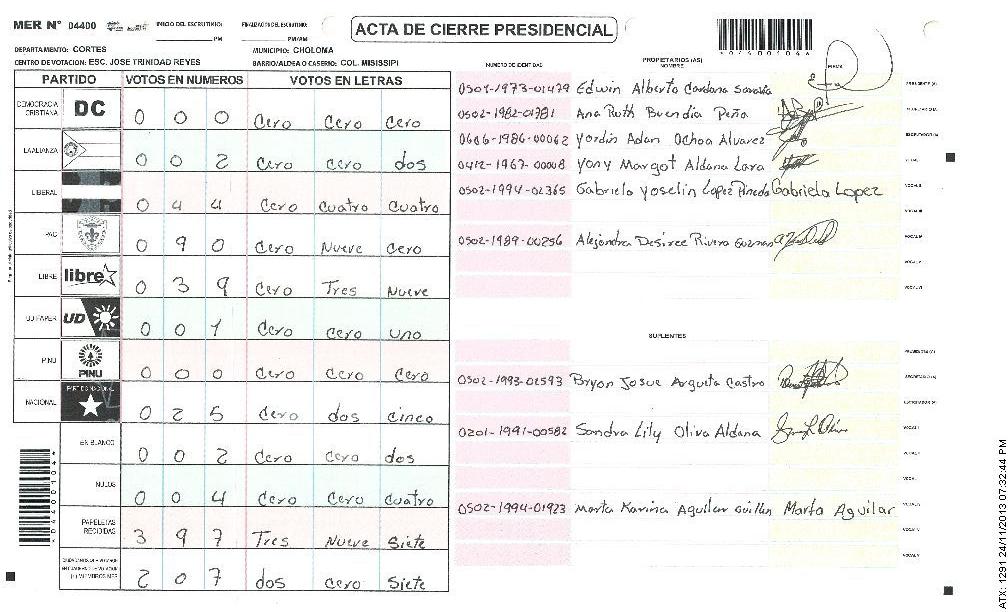 MER N° 04400 INICIO DEL ESCRUTINIO: FINALIZACION DEL ESCRUTINIO: ACTA DE CIERRE PRESIDENCIAL
PM PM/AM
DEPARTAMENTO: CORTES MUNICIPIO: CHOLOMA
CENTRO DE VOTACION: ESC. JOSE TRINIDAD REYES BARRIO/ALDEA O CASERIO: COL. MISISSIPI
PARTIDO VOTOS EN NUMEROS VOTOS EN LETRAS
DEMOCRACIA CRISTIANA DC 0 0 0 Cero Cero Cero
LA ALIANZA 0 0 2 Cero Cero dos
LIBERAL 0 4 4 Cero Cuatro Cuatro
PAC 0 9 0 Cero Nueve Cero
LIBRE libre 0 3 9 Cero Tres Nueve
UD FAPER UD 0 0 1 Cero Cero uno
PINU PINU 0 0 0 Cero Cero Cero
NACIONAL PARTIDO NACIONAL 0 2 5 Cero dos cinco
EN BLANCO 0 0 2 Cero Cero dos
NULOS 0 0 4 Cero Cero Cuatro
PAPELETAS RECIBIDAS 3 9 7 Tres Nueve Siete
2 0 7 dos Cero Siete
*04400104*
NUMERO DE IDENTIDAD PROPIETARIOS (AS) NOMBRE FIRMA
0501-1973-01479 Edwin Alberto Cardona PRESIDENTE (A)
0502-1982-01781 Ana Ruth Buendia Peña
0606-1986-00062 Yordin Adan Ochoa Alvarez ESCRUTADOR (A)
0412-1967-00008 Yony Margot Aldana Lara VOCAL I
0502-1994-02365 Gabriela Yoselin Lopez Pineda Gabriela Lopez VOCAL II
VOCAL III
0502-1989-00256 Alejandra Desiree Rivera Guzman VOCAL IV
VOCAL V
VOCAL VI
SUPLENTES
PRESIDENTE (A)
0502-1993-02593 Bryon Josue Argueta Castro SECRETARIO (A)
ESCRUTADOR (A)
0201-1991-00582 Sandra Lily Oliva Aldana VOCAL I
0502-1994-01923 Marta Karina Aguilar Guillen Marta Aguilar
ATX: 1291 24/11/2013 07:32:44 PM